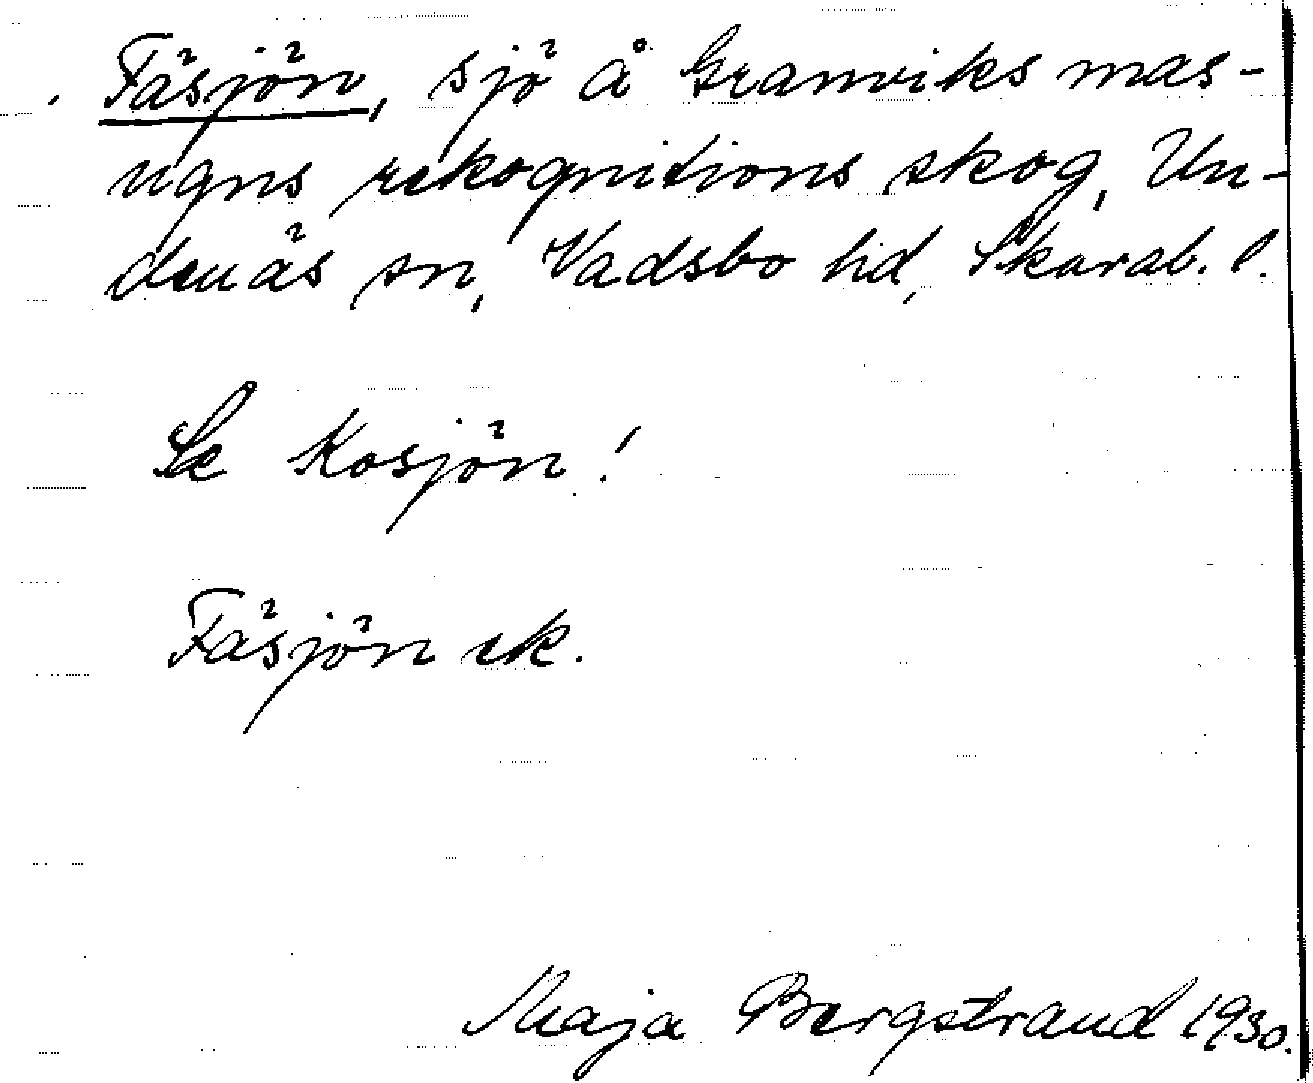 Fäsjön, sjö å Granviks mas-
ugns rekognitions skog, Un-
denäs sn, Vadsbo hd, Skarab. l.
Se Kosjön!
Fäsjön ek.
Maja Bergstrand 1930.